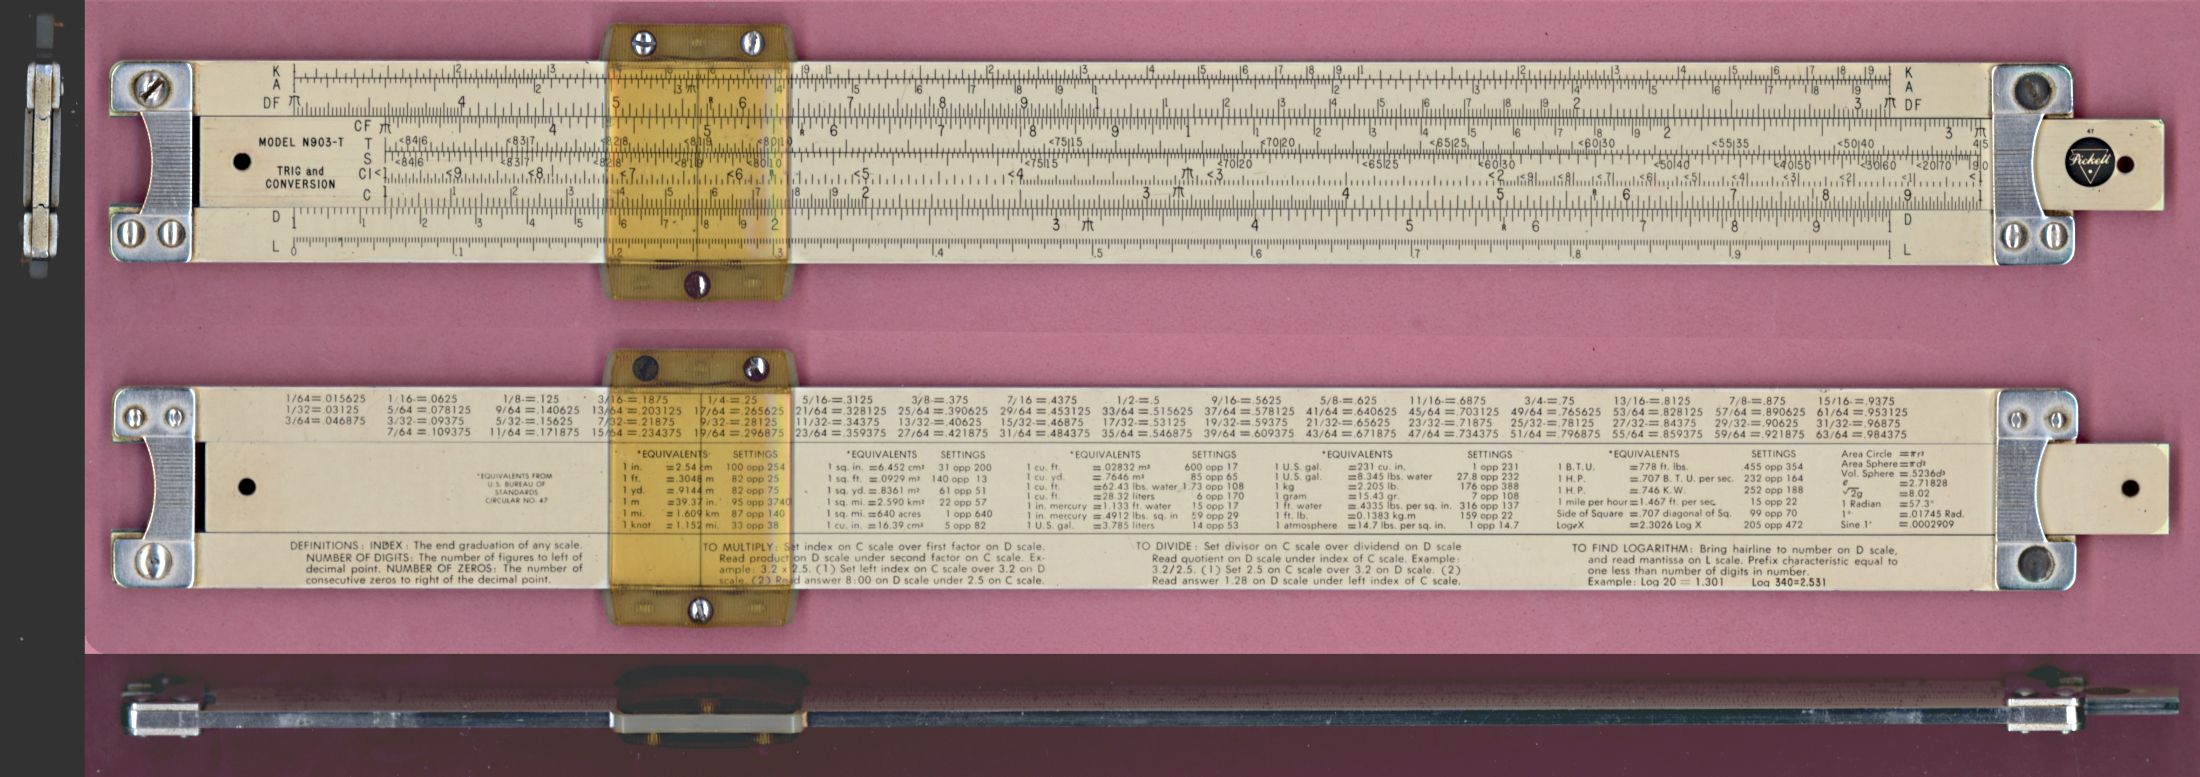 K 1 2 3 4 5 6 7 8 9 1 2 3 4 5 6 7 8 9 1 2 3 4 5 6 7 8 9 1 K
A 1 2 3 π 4 5 6 7 8 9 1 2 3 4 5 6 7 8 9 1 A
DF π 4 5 R 6 7 8 9 1 1 2 3 4 5 6 7 8 9 2 3 π DF
CF π 4 5 R 6 7 8 9 1 1 2 3 4 5 6 7 8 9 2 3 π
MODEL N903-T
T <84|6 <83|7 <82|8 <81|9 <80|10 <75|15 <70|20 <65|25 <60|30 <55|35 <50|40 45
S <84|6 <83|7 <82|8 <81|9 <80|10 <75|15 <70|20 <65|25 <60|30 <50|40 <40|50 <30|60 <20|70 90
TRIG and
CONVERSION
CI <1 <9 <8 <7 <6 R <5 <4 π <3 <2 <9 <8 <7 <6 <5 <4 <3 <2 <1 <1
C 1 1 2 3 4 5 6 7 8 9 2 3 π 4 5 R 6 7 8 9 1
D 1 1 2 3 4 5 6 7 8 9 2 3 π 4 5 R 6 7 8 9 1 D
L 0 .1 .2 .3 .4 .5 .6 .7 .8 .9 1 L
4T
Pickett
1/64=.015625 1/16=.0625 1/8=.125 3/16=.1875 1/4=.25 5/16=.3125 3/8=.375 7/16=.4375 1/2=.5 9/16=.5625 5/8=.625 11/16=.6875 3/4=.75 13/16=.8125 7/8=.875 15/16=.9375
1/32=.03125 5/64=.078125 9/64=.140625 13/64=.203125 17/64=.265625 21/64=.328125 25/64=.390625 29/64=.453125 33/64=.515625 37/64=.578125 41/64=.640625 45/64=.703125 49/64=.765625 53/64=.828125 57/64=.890625 61/64=.953125
3/64=.046875 3/32=.09375 5/32=.15625 7/32=.21875 9/32=.28125 11/32=.34375 13/32=.40625 15/32=.46875 17/32=.53125 19/32=.59375 21/32=.65625 23/32=.71875 25/32=.78125 27/32=.84375 29/32=.90625 31/32=.96875
7/64=.109375 11/64=.171875 15/64=.234375 19/64=.296875 23/64=.359375 27/64=.421875 31/64=.484375 35/64=.546875 39/64=.609375 43/64=.671875 47/64=.734375 51/64=.796875 55/64=.859375 59/64=.921875 63/64=.984375
*EQUIVALENTS FROM
U.S. BUREAU OF
STANDARDS
CIRCULAR NO. 47
*EQUIVALENTS SETTINGS
1 in. =2.54 cm 100 opp 254
1 ft. =.3048 m 82 opp 25
1 yd. =.9144 m 82 opp 75
1 m =39.37 in. 95 opp 3740
1 mi. =1.609 km 87 opp 140
1 knot =1.152 mi. 33 opp 38
*EQUIVALENTS SETTINGS
1 sq. in. =6.452 cm² 31 opp 200
1 sq. ft. =.0929 m² 140 opp 13
1 sq. yd. =.8361 m² 61 opp 51
1 sq. mi. =2.590 km² 22 opp 57
1 sq. mi. =640 acres 1 opp 640
1 cu. in. =16.39 cm³ 5 opp 82
*EQUIVALENTS SETTINGS
1 cu. ft. =.02832 m³ 600 opp 17
1 cu. yd. =.7646 m³ 85 opp 65
1 cu. ft. =62.43 lbs. water 1.73 opp 108
1 cu. ft. =28.32 liters 6 opp 170
1 in. mercury =1.133 ft. water 15 opp 17
1 in. mercury =.4912 lbs. sq. in 59 opp 29
1 U.S. gal. =3.785 liters 14 opp 53
*EQUIVALENTS SETTINGS
1 U.S. gal. =231 cu. in. 1 opp 231
1 U.S. gal. =8.345 lbs. water 27.8 opp 232
1 kg =2.205 lb. 176 opp 388
1 gram =15.43 gr. 7 opp 108
1 ft. water =.4335 lbs. per sq. in. 316 opp 137
1 ft. lb. =0.1383 kg.m 159 opp 22
1 atmosphere =14.7 lbs. per sq. in. 1 opp 14.7
*EQUIVALENTS SETTINGS
1 B.T.U. =778 ft. lbs. .455 opp 354
1 H.P. =.707 B. T. U. per sec. 232 opp 164
1 H.P. =.746 K.W. 252 opp 188
1 mile per hour =1.467 ft. per sec. 15 opp 22
Side of Square =.707 diagonal of Sq. 99 opp 70
LogₑX =2.3026 Log X 205 opp 472
Area Circle =πr²
Area Sphere =πd²
Vol. Sphere =.5236d³
e =2.71828
√2g =8.02
1 Radian =57.3°
1° =.01745 Rad.
Sine 1' =.0002909
DEFINITIONS: INDEX: The end graduation of any scale.
NUMBER OF DIGITS: The number of figures to left of
decimal point. NUMBER OF ZEROS: The number of
consecutive zeros to right of the decimal point.
TO MULTIPLY: Set index on C scale over first factor on D scale.
Read product on D scale under second factor on C scale. Ex-
ample: 3.2 x 2.5. (1) Set left index on C scale over 3.2 on D
scale. (2) Read answer 8.00 on D scale under 2.5 on C scale.
TO DIVIDE: Set divisor on C scale over dividend on D scale
Read quotient on D scale under index of C scale. Example:
3.2/2.5. (1) Set 2.5 on C scale over 3.2 on D scale. (2)
Read answer 1.28 on D scale under left index of C scale.
TO FIND LOGARITHM: Bring hairline to number on D scale,
and read mantissa on L scale. Prefix characteristic equal to
one less than number of digits in number.
Example: Log 20 = 1.301 Log 340=2.531